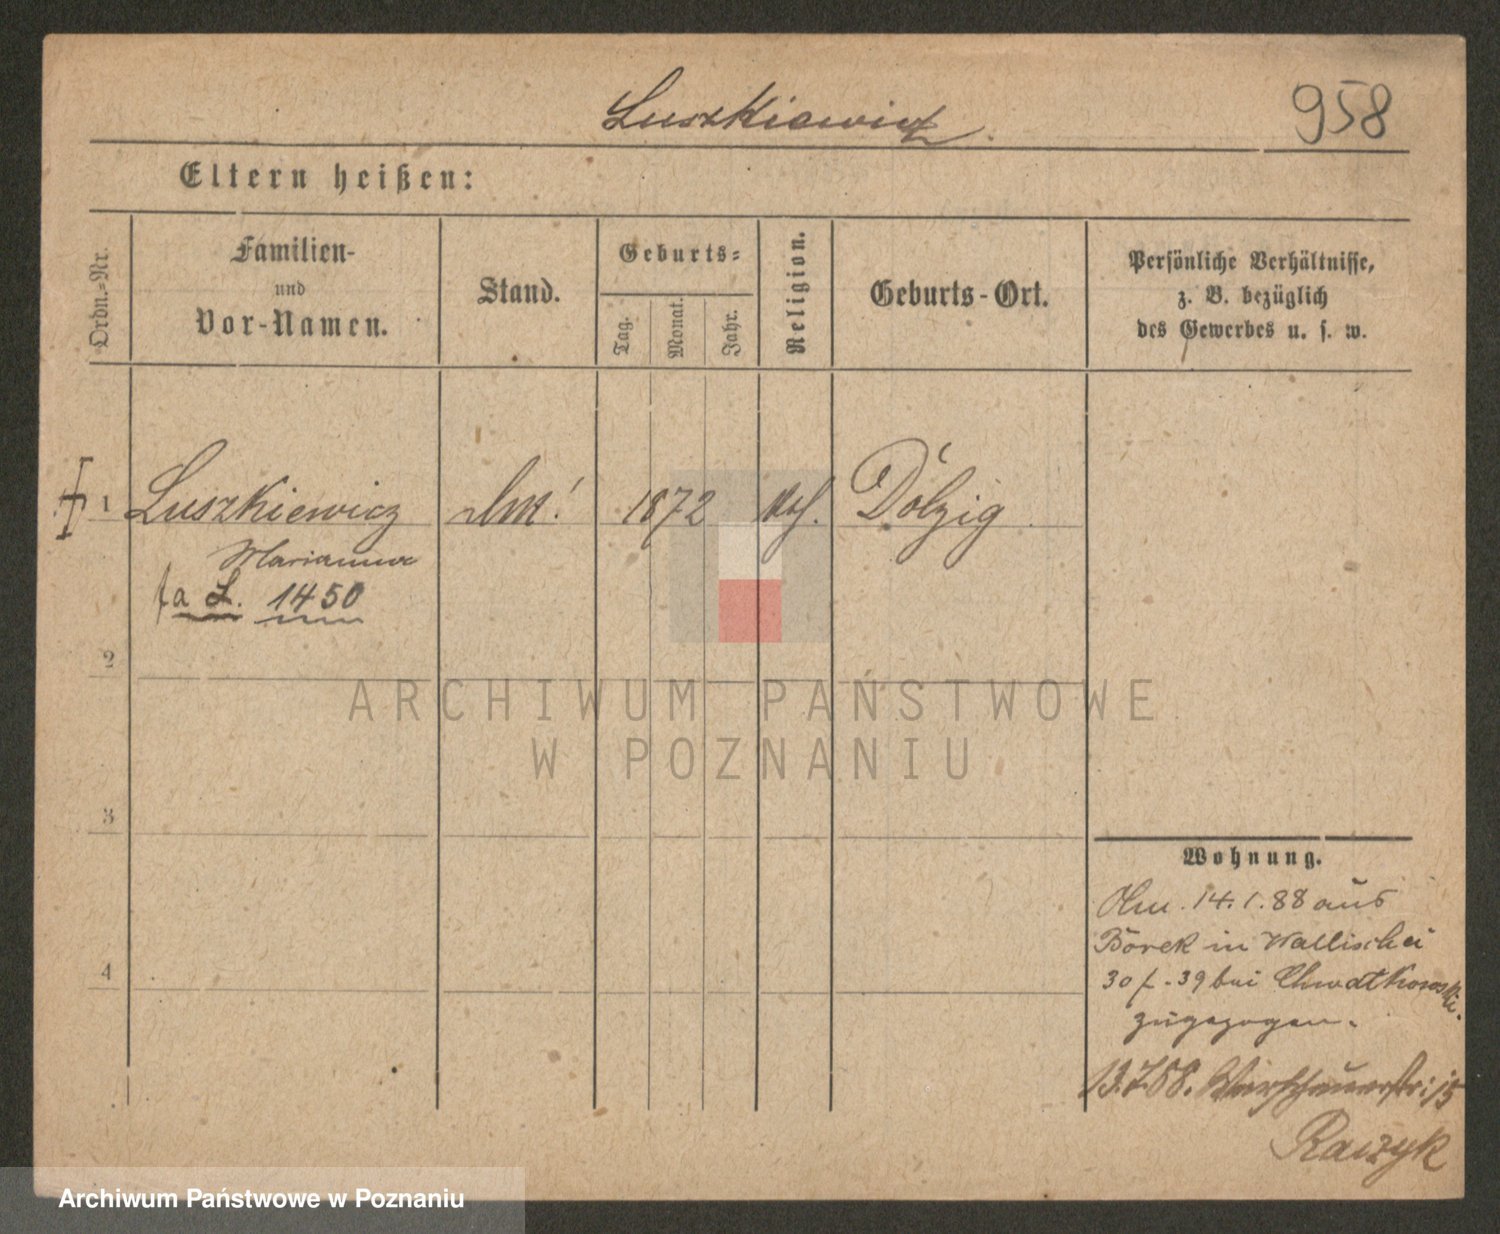 Luszkiewicz.
958
Eltern heißen:
Ordn.=Nr.
Familien-
und
Vor-Namen.
Stand.
Geburts=
Tag.
Monat.
Jahr.
Religion.
Geburts-Ort.
Persönliche Verhältnisse,
z. B. bezüglich
des Gewerbes u. s. w.
1 Luszkiewicz 1872 kth. Dolzig
Marianna
fa L. 1450
2
ARCHIWUM PAŃSTWOWE
W POZNANIU
3
4
Wohnung.
14.1.88 aus
Borek in Wallischei
30 / -39 bei Chwatkowski
zugezogen.
13.7.88. 15
Raczyk
Archiwum Państwowe w Poznaniu